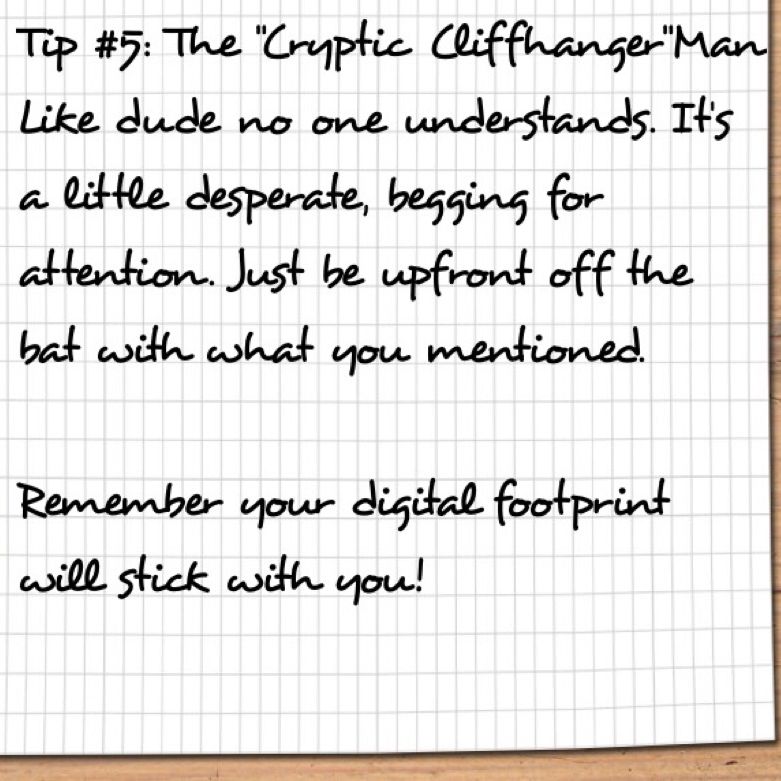 Tip #5: The "Cryptic Cliffhanger"Man
Like dude no one understands. It's
a little desperate, begging for
attention. Just be upfront off the
bat with what you mentioned.
Remember your digital footprint
will stick with you!